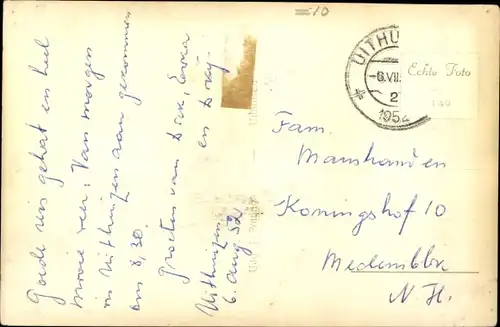 Goede reis gehad en heel
mooie reis. Van morgen
in Uithuizen aan gekomen
om 8,30.
Groeten van Dick,
en
Uithuizen
6. Aug 52
=10
UITHU
-6.VII
2
1952
Echte Foto
Fam.
Manshanden
Koningshof 10
Medemblik
N.H.